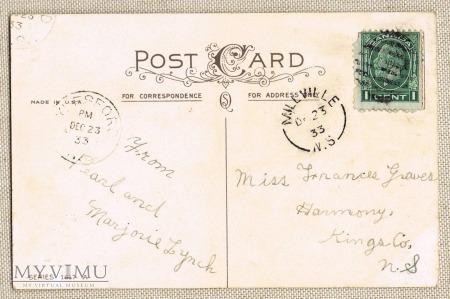 POST CARD
CANADA
1 CENT 1
MADE IN U.S.A.
FOR CORRESPONDENCE
FOR ADDRESS ONLY
PM
DEC 23
33
N.S.
MILLVILLE
DE 23
33
N.S.
From
Pearl and
Marjorie Lynch
Miss Frances Graves
Harmony,
Kings Co,
N.S
SERIES
MYVIMU
MY VIRTUAL MUSEUM